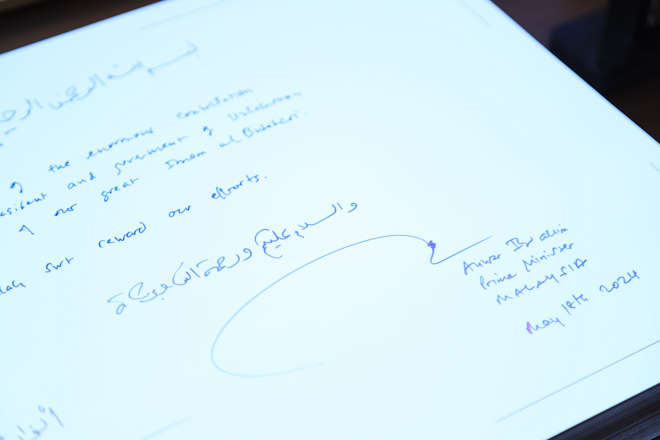 بسم الله الرحمن الرحيم
of the enormous contribution
President and government of Uzbekistan
of our great Imam al Bukhari.
Allah swt reward our efforts.
والسلام عليكم ورحمة الله وبركاته
Anwar Ibrahim
Prime Minister
MALAYSIA
May 18th 2024